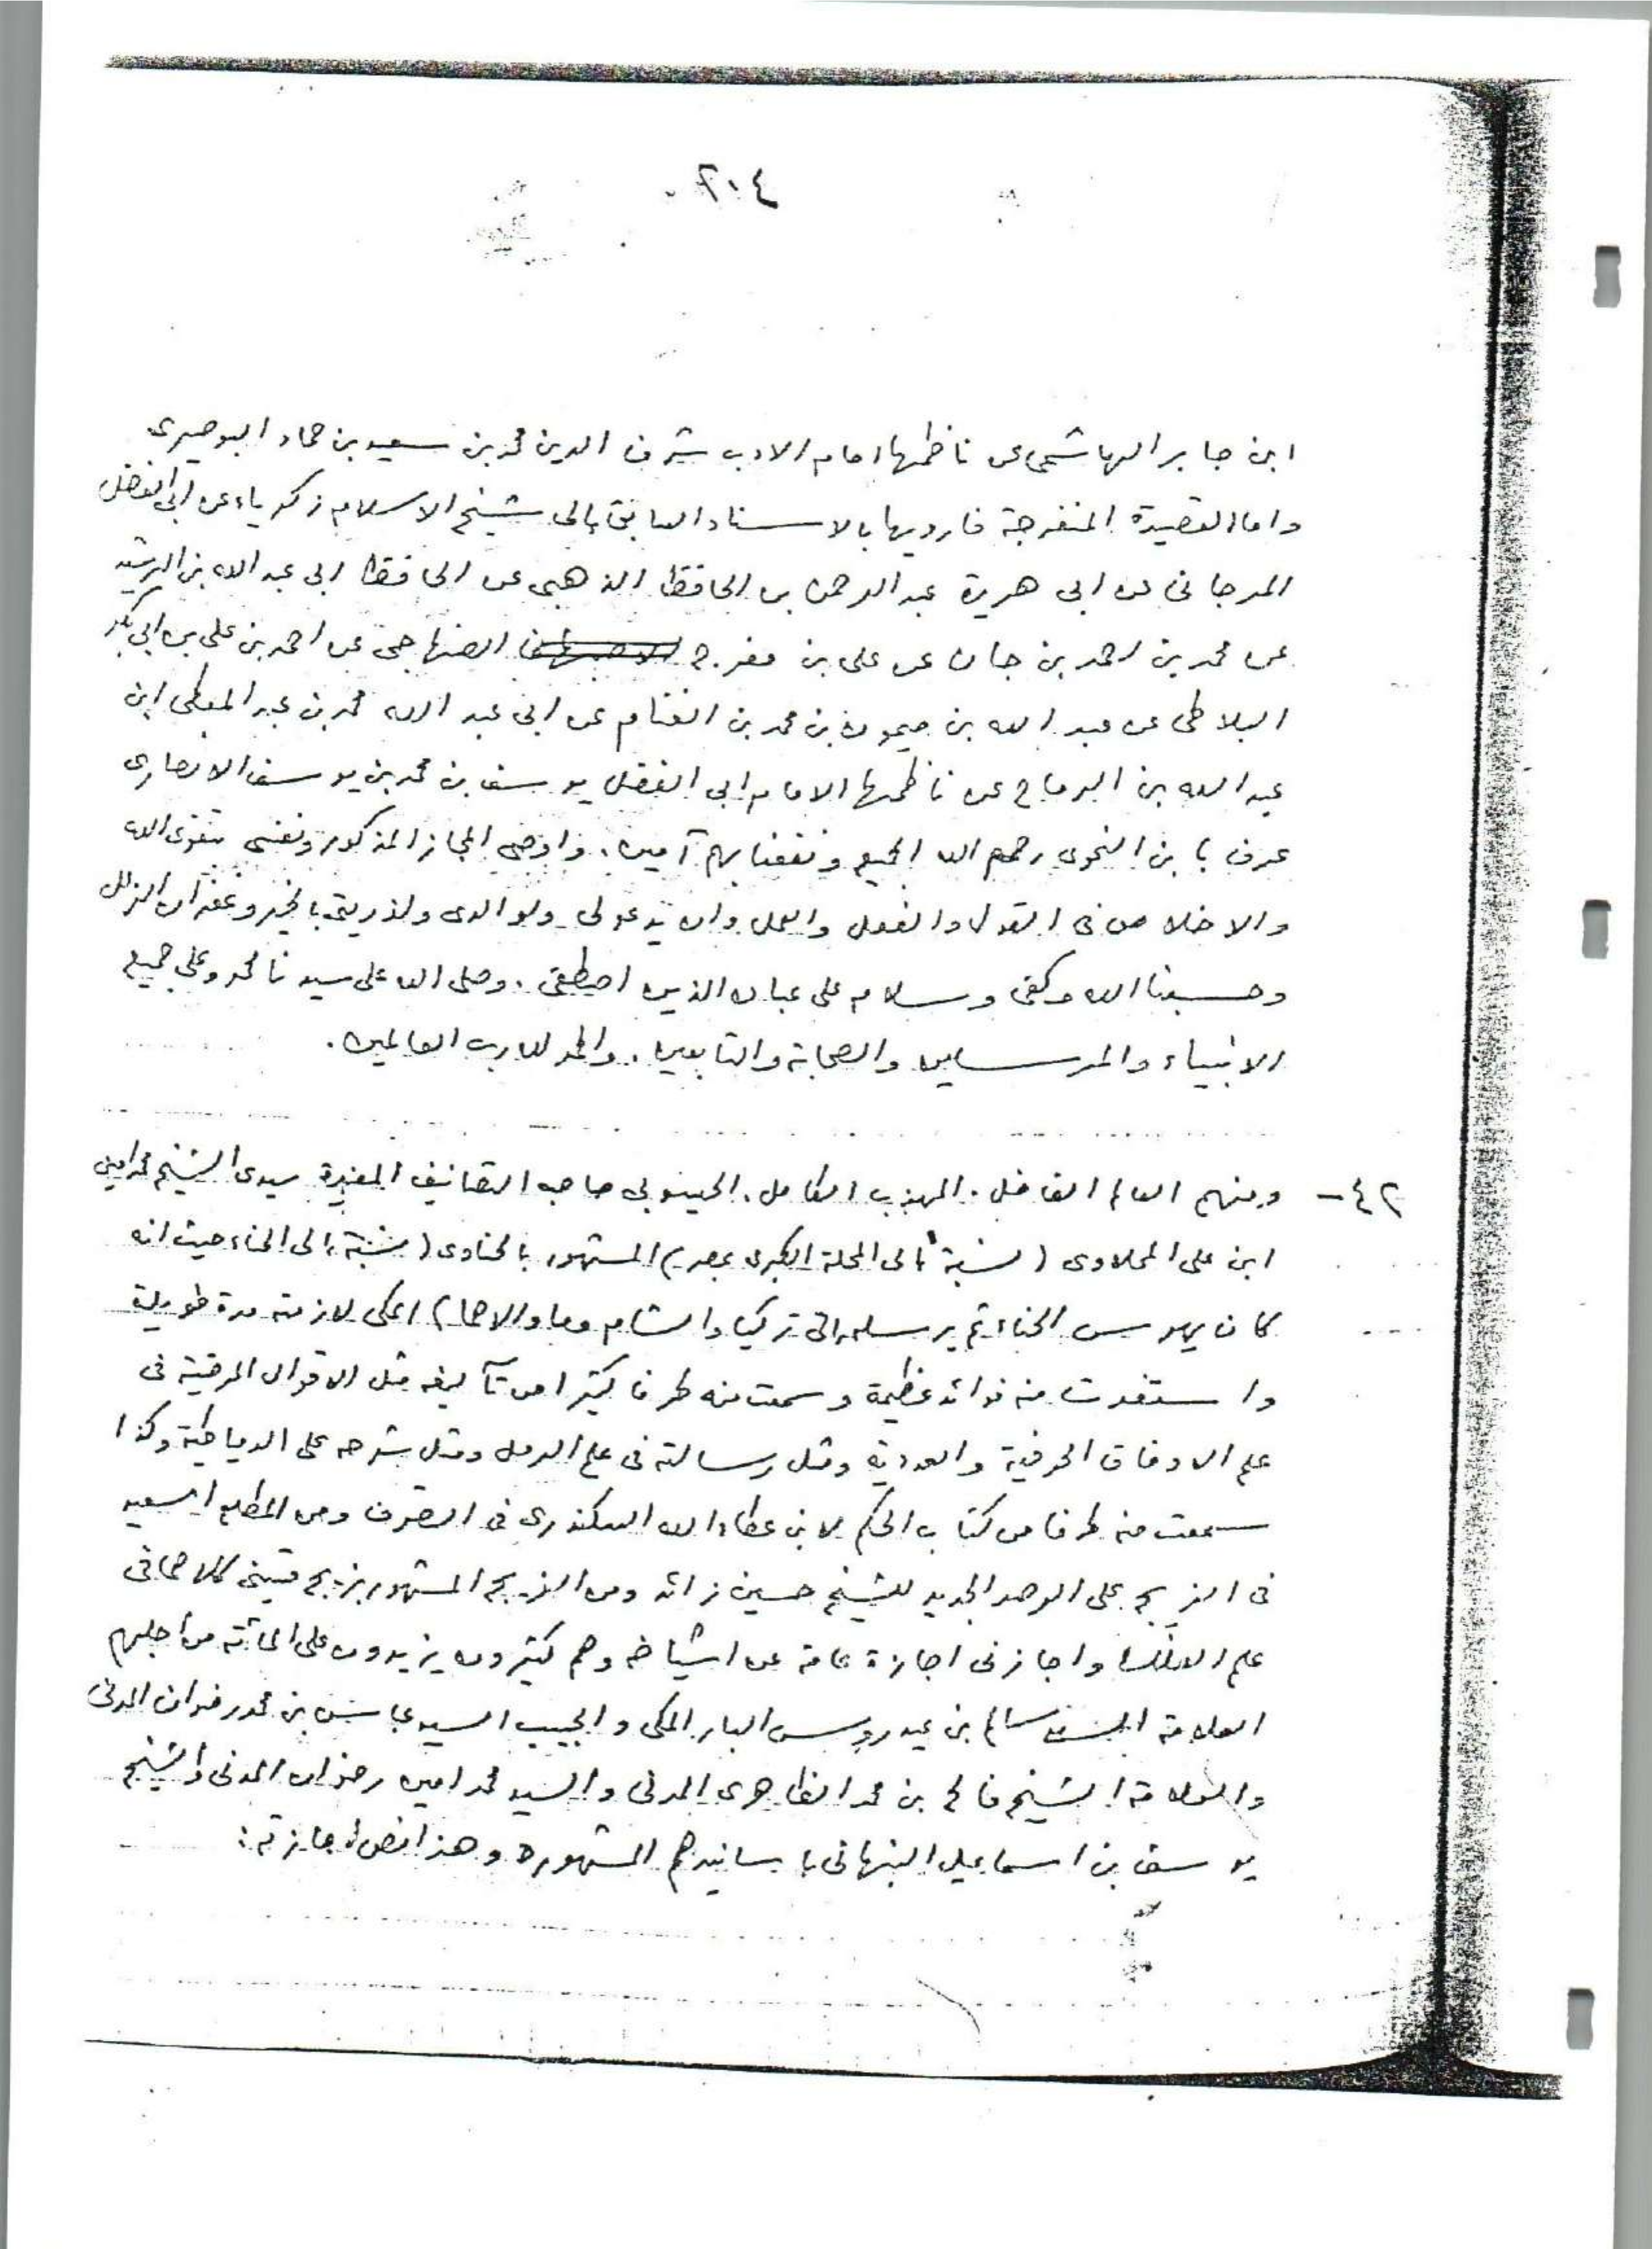 ٢٠٤
ابن جابر الهاشمى عن ناظمها امام الادب شرف الدين محمد بن سعيد بن حماد البوصيرى
واما القصيدة المنفرجة فارويها بالاسناد السابق الى شيخ الاسلام زكرياء عن ابى الفضل
المرجانى عن ابى هريرة عبد الرحمن بن الحافظ الذهبى عن الحافظ ابى عبد الله بن الرشيد
عن محمد بن احمد بن حبان عن على بن مفرج الصنهاجى عن احمد بن على بن ابى بكر
البلاطى عن عبد الله بن ميمون بن محمد بن الغنام عن ابى عبد الله محمد بن عبد المعطى ابن
عبد الله بن الرماح عن ناظمها الامام ابى الفضل يوسف بن محمد بن يوسف الانصارى
عرف بابن النحوى رحمهم الله الجميع ونفعنا بهم آمين. واوصى المجاز المذكور ونفسى بتقوى الله
والاخلاص فى القول والفعل والعمل وان يدعو لى ولوالدى ولذريتى بالخير وغفران الزلل
وحسبنا الله وكفى وسلام على عباده الذين اصطفى. وصلى الله على سيدنا محمد وعلى جميع
الانبياء والمرسلين والصحابة والتابعين. والحمد لله رب العالمين.
٤٢- ومنهم العالم الفاضل. المهذب الكامل. الحيسوبى صاحب التصانيف المفيدة سيدى الشيخ محمد امين
ابن على المحلاوى (نسبة الى المحلة الكبرى بمصر) المشهور بالحناوى (نسبة الى الحناء حيث انه
كان يهرس الحناء ثم يرسله الى تركيا والشام وما والاهما) المكى لازمته مدة طويلة
واستفدت منه فوائد عظيمة وسمعت منه طرفا كثيرا من تآليفه مثل الاقوال المرضية فى
علم الاوفاق الحرفية والعددية ومثل رسالته فى علم الرمل ومثل شرحه على الدمياطية وكذا
سمعت منه طرفا من كتاب الحكم لابن عطاء الله السكندرى فى التصوف ومن المطلع السعيد
فى الزيج على الرصد الجديد للشيخ حسين زائد ومن الزيج المشهور بزيج كلاهما فى
علم الفلك واجازنى اجازة عامة عن اشياخه وهم كثيرون يزيدون على المائة من اجلهم
العلامة السيد سالم بن عيدروس البار المكى والحبيب السيد عباس بن محمد رضوان المدنى
والعلامة الشيخ فالح بن محمد الظاهرى المدنى والسيد محمد امين رضوان المدنى والشيخ
يوسف بن اسماعيل النبهانى باسانيدهم المشهورة وهذا نص اجازته: